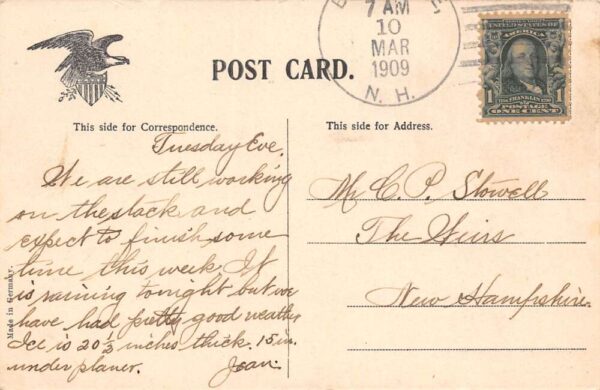 7 AM
10
MAR
1909
N. H.
UNITED STATES OF AMERICA
FRANKLIN
1 1
POSTAGE
ONE CENT
POST CARD.
This side for Correspondence.
This side for Address.
Tuesday Eve.
We are still working
on the stack and
expect to finish some
time this week. It
is raining tonight but we
have had pretty good weather
Ice is 20 1/2 inches thick. 15 in.
under planer.
Mr C. P. Stowell
The Weirs
New Hampshire.
Made in Germany.